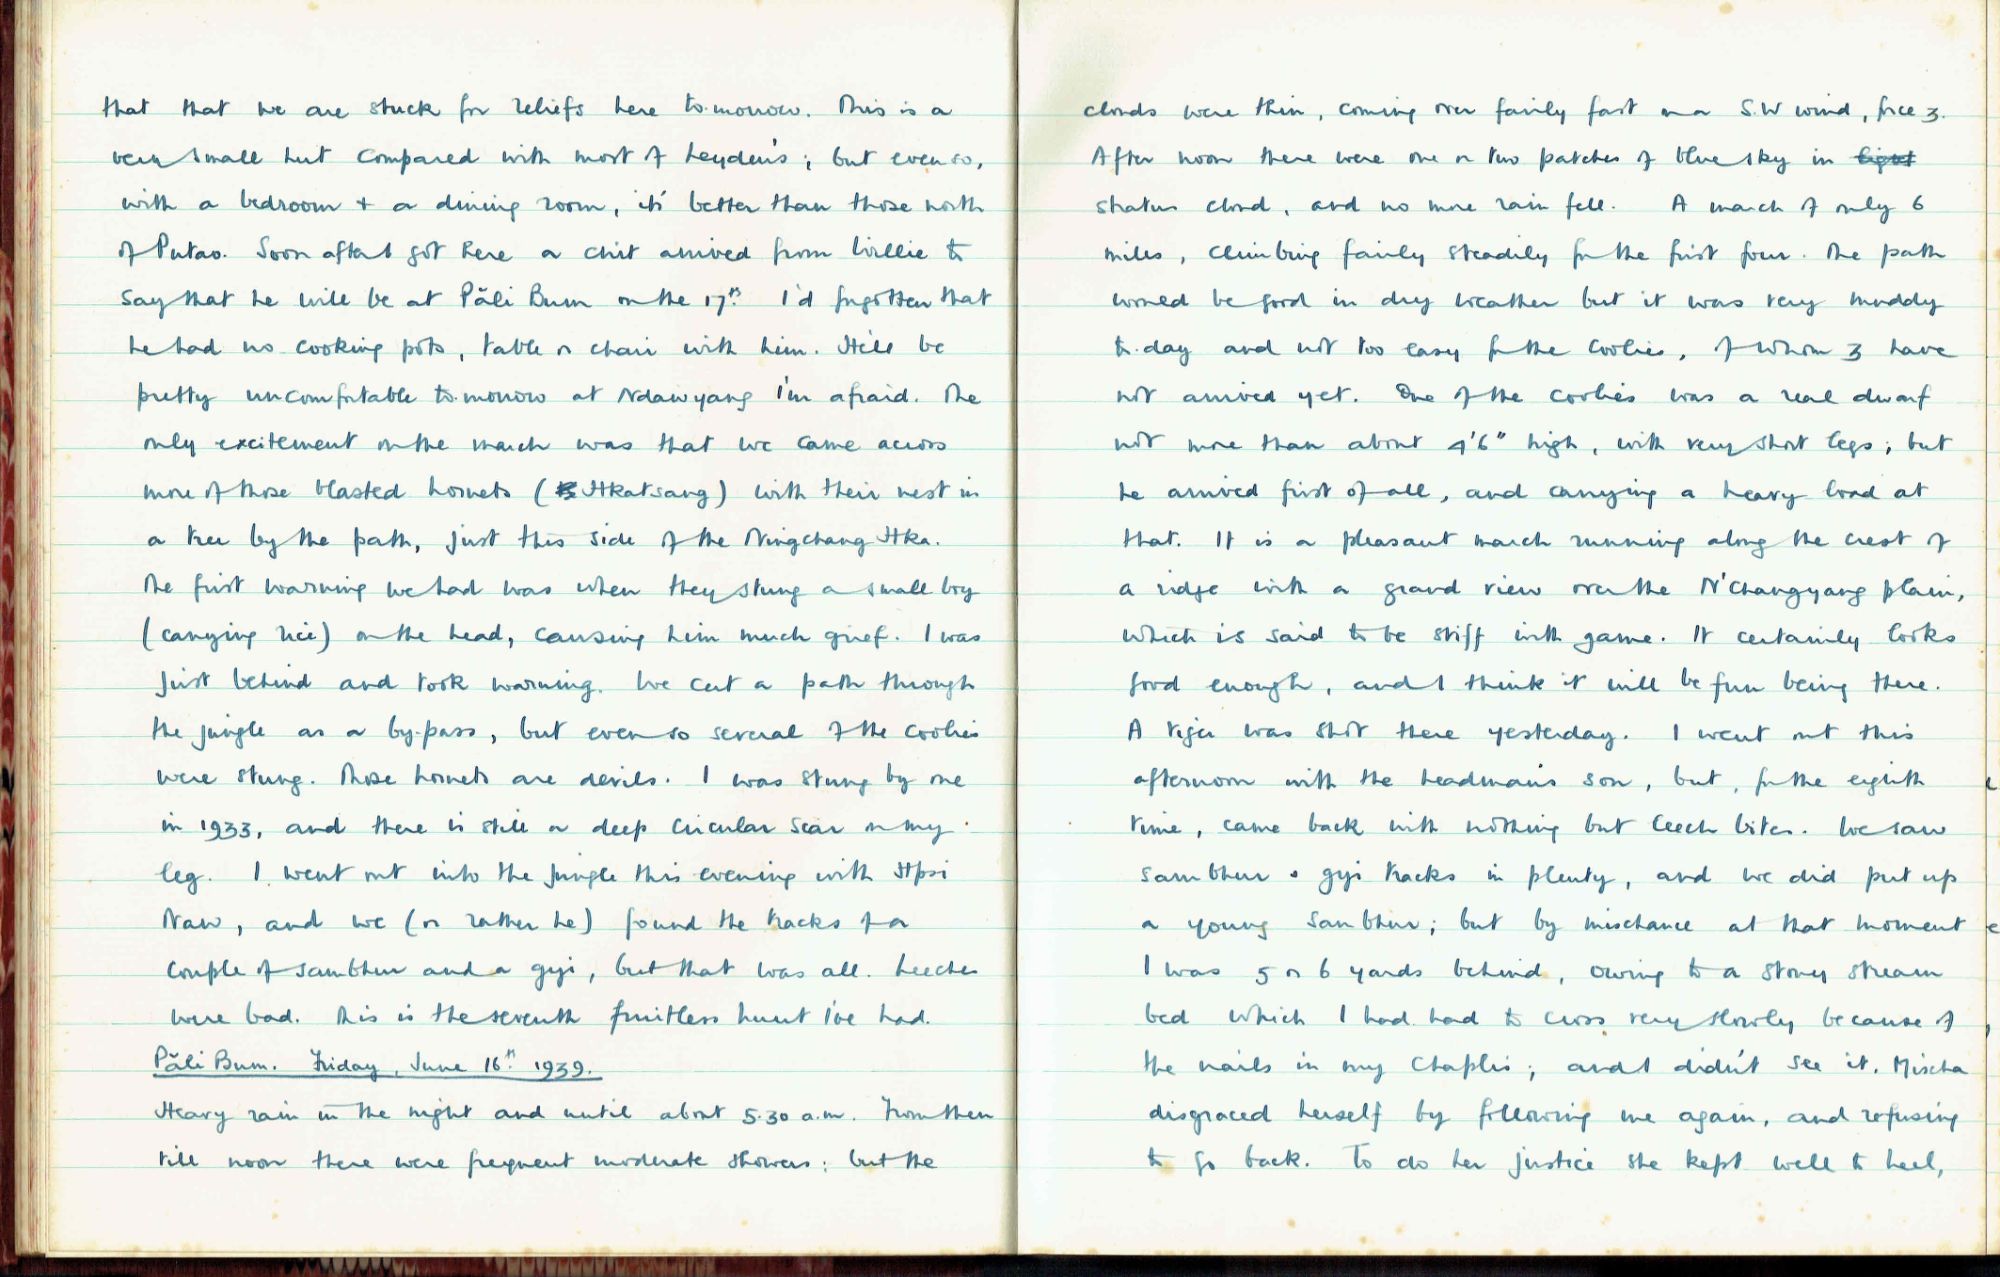 that that we are stuck for reliefs here to-morrow. This is a
very small hut compared with most of Leyden's; but even so,
with a bedroom + a dining room, it's better than those north
of Putao. Soon after I got here a chit arrived from Willie to
say that he will be at Păli Bum on the 17th. I'd forgotten that
he had no cooking pots, table or chair with him. He'll be
pretty uncomfortable to-morrow at Ndawyang I'm afraid. The
only excitement on the march was that we came across
more of those blasted hornets (Hkatsang) with their nest in
a tree by the path, just this side of the Ningchang Hka.
The first warning we had was when they stung a small boy
(carrying rice) on the head, causing him much grief. I was
just behind and took warning. We cut a path through
the jungle as a by-pass, but even so several of the coolies
were stung. Those hornets are devils. I was stung by one
in 1933, and there is still a deep circular scar on my
leg. I went out into the jungle this evening with Hpsi
Naw, and we (or rather he) found the tracks of a
couple of sambhur and a gyi, but that was all. Leeches
were bad. This is the seventh fruitless hunt I've had.
Păli Bum. Friday, June 16th 1939.
Heavy rain in the night and until about 5.30 a.m. From then
till noon there were frequent moderate showers; but the
clouds were thin, coming over fairly fast on a S.W wind, force 3.
After noon there were one or two patches of blue sky in light
stratus cloud, and no more rain fell. A march of only 6
miles, climbing fairly steadily for the first four. The path
would be good in dry weather but it was very muddy
to-day and not too easy for the coolies, of whom 3 have
not arrived yet. One of the coolies was a real dwarf
not more than about 4'6" high, with very short legs; but
he arrived first of all, and carrying a heavy load at
that. It is a pleasant march running along the crest of
a ridge with a grand view over the N'Changyang plain,
which is said to be stiff with game. It certainly looks
good enough, and I think it will be fun being there.
A tiger was shot there yesterday. I went out this
afternoon with the headman's son, but, for the eighth
time, came back with nothing but leech bites. We saw
sambhur & gyi tracks in plenty, and we did put up
a young sambhur; but by mischance at that moment
I was 5 or 6 yards behind, owing to a stony stream
bed which I had had to cross very slowly because of
the nails in my chaplis; and I didn't see it. Mischa
disgraced herself by following me again, and refusing
to go back. To do her justice she kept well to heel,